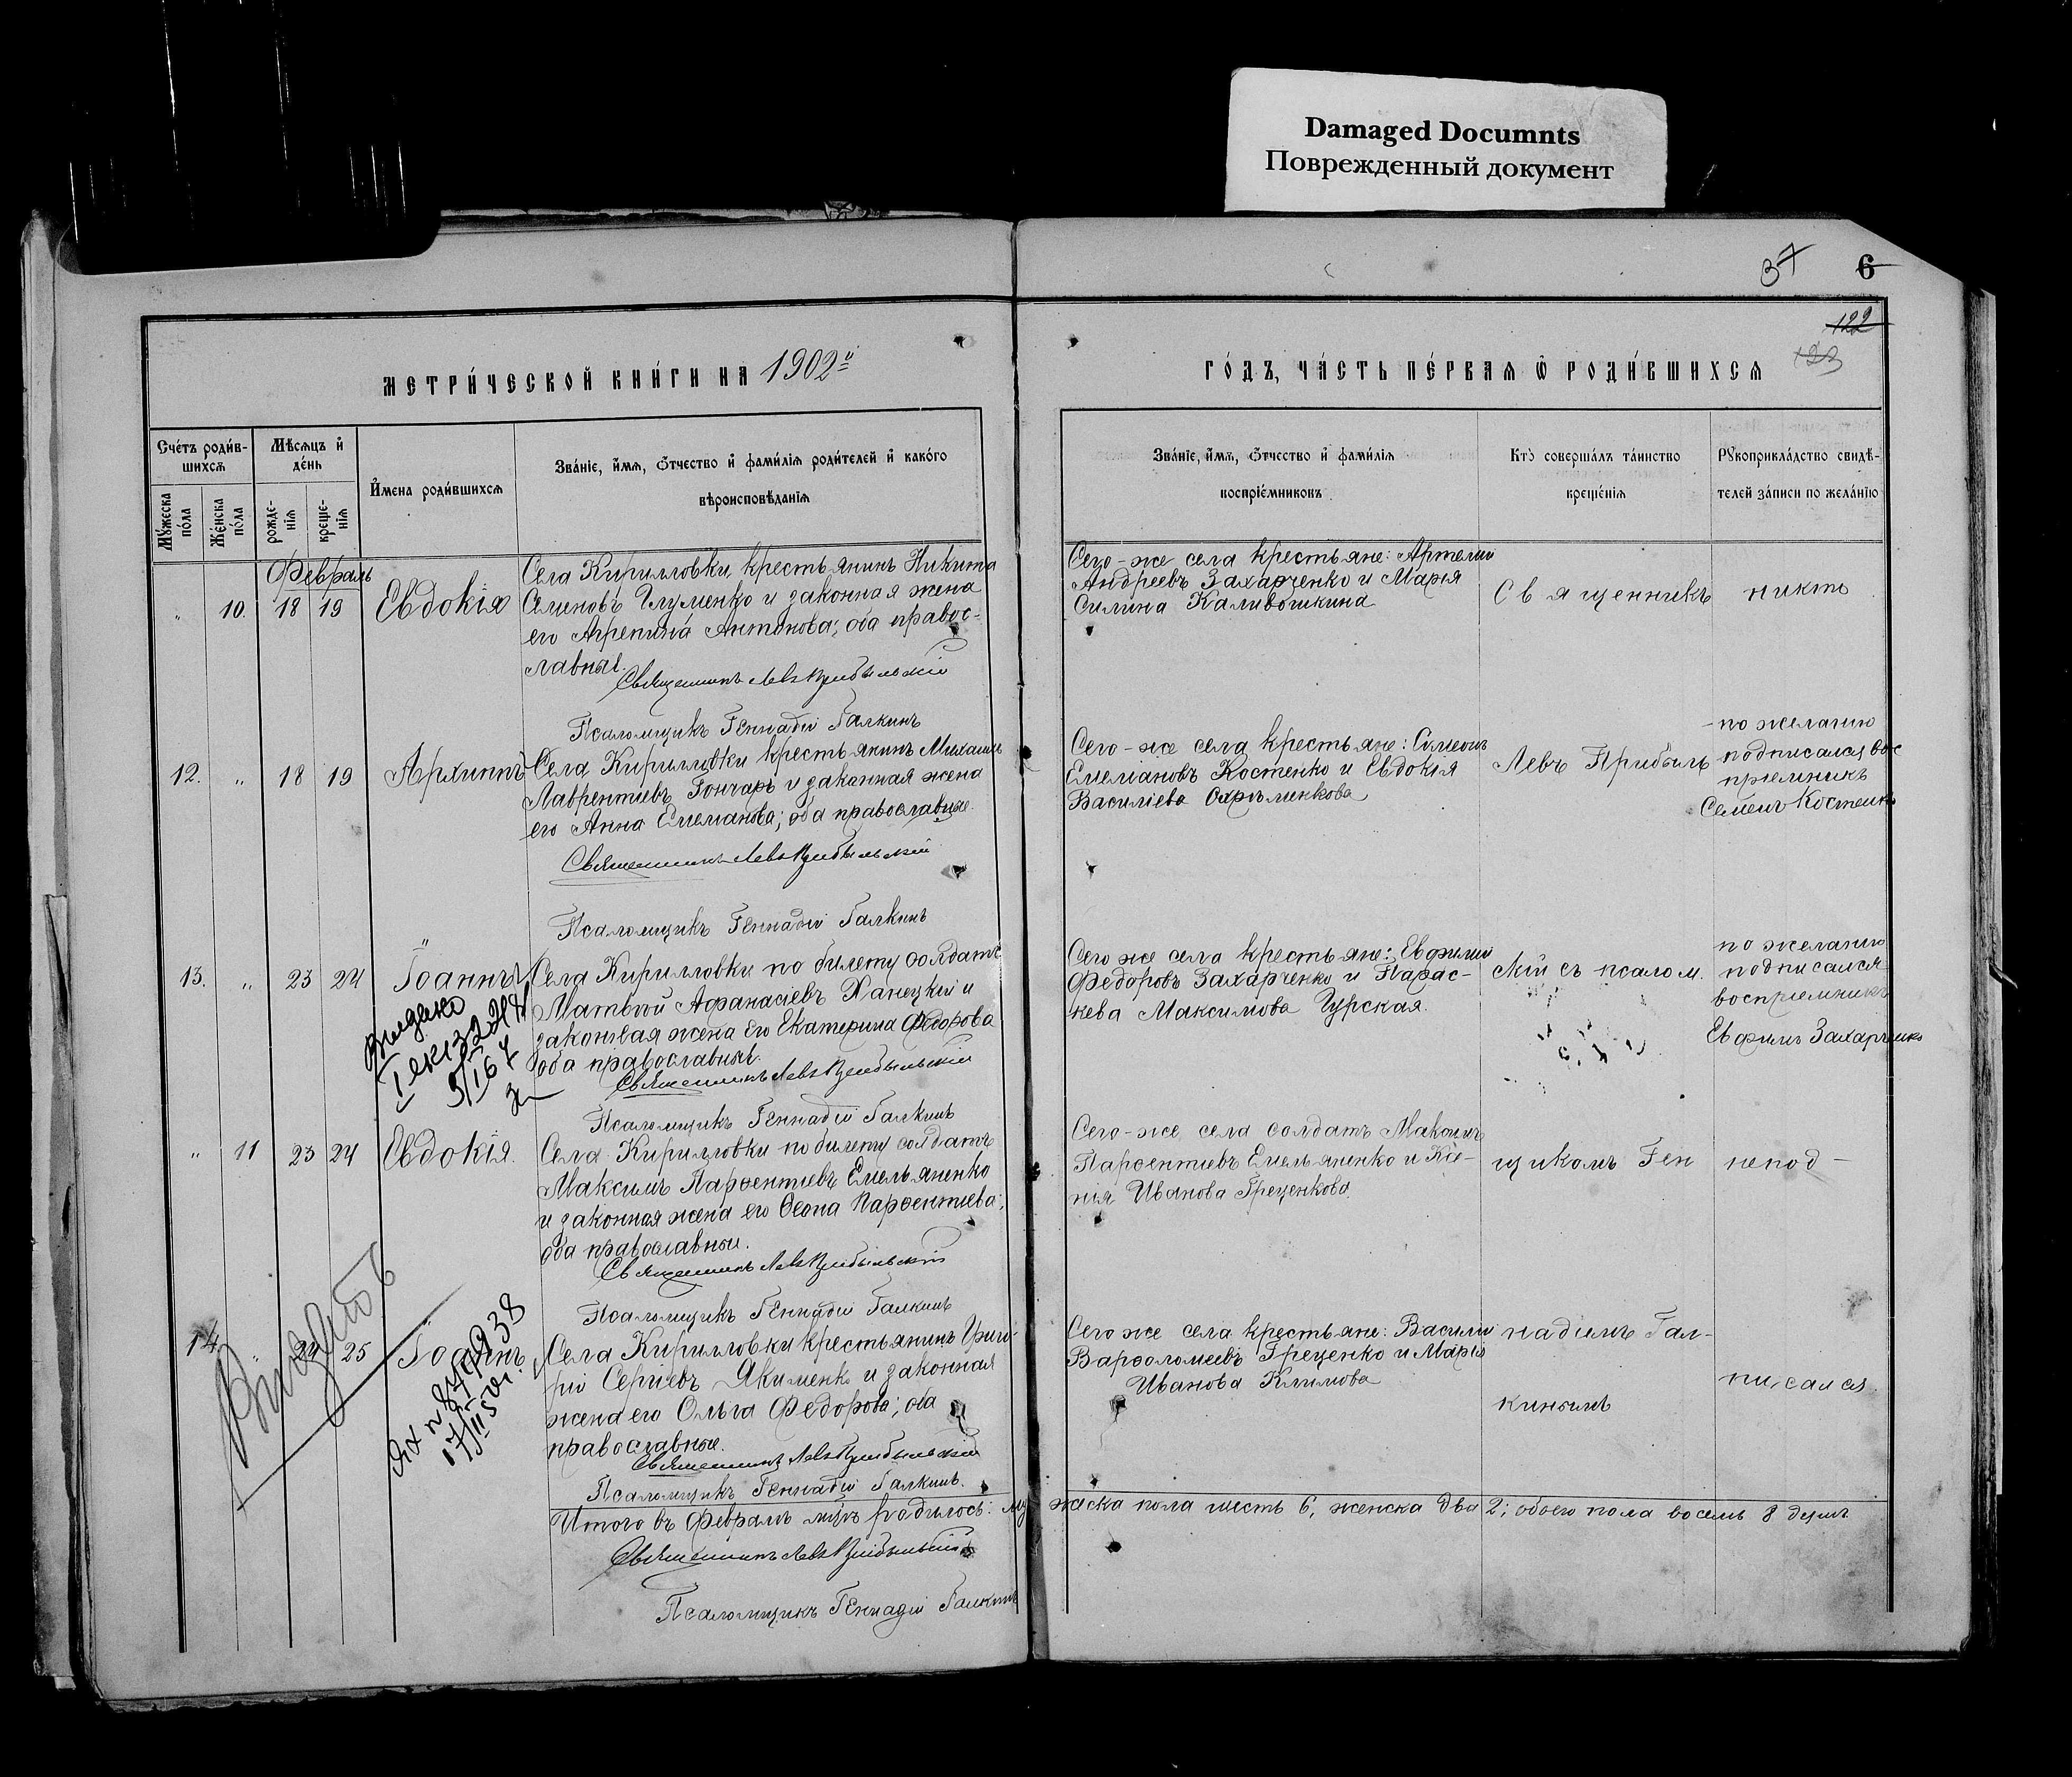 Damaged Documnts
Поврежденный документ
37 6
122
123
МЕТРИ́ЧЕСКОЙ КНИ́ГИ НА 1902й
ГО́ДЪ, ЧА́СТЬ ПЕ́РВАѦ Ѽ РОДИ́ВШИХСѦ
Счє́тъ роди́в-
шихсѧ
Мꙋ́жеска по́ла
Же́нска по́ла
Мѣ́сѧцъ и҆ де́нь
рожде-нїѧ
креще-нїѧ
И҆мена роди́вшихсѧ
Зва́нїе, и҆́мѧ, ѻ҆́тчество и҆ фами́лїѧ роди́телей и҆ како́гѡ
вѣроисповѣ́данїѧ
Зва́нїе, и҆́мѧ, ѻ҆́тчество и҆ фами́лїѧ
воспрїе́мниковъ
Кто̀ соверша́лъ та́инство
креще́нїѧ
Рꙋкоприкла́дство свидѣ́-
телей за́писи по жела́нїю
Февраль
" 10. 18 19 Евдокія
Села Кирилловки крестьянинъ Никита
Семеновъ Глуменко и законная жена
его Агрепина Антонова; оба правос-
лавные.
Священникъ Левъ Прибыльскій
Псаломщикъ Геннадій Галкинъ
Сего-же села крестьяне: Артемій
Андреевъ Захарченко и Марія
Силина Каливошкина
Священникъ
никто
12. " 18 19 Архиппъ
Села Кирилловки крестьянинъ Михаилъ
Лаврентіевъ Гончаръ и законная жена
его Анна Емеліанова; оба православные.
Священникъ Левъ Прибыльскій
Псаломщикъ Геннадій Галкинъ
Сего-же села крестьяне: Симеонъ
Емеліановъ Костенко и Евдокія
Василіева
Левъ Прибыль
по желанію
подписался вос
пріемникъ
Семенъ Костенко
13. " 23 24 Іоаннъ
Села Кирилловки по билету солдатъ
Матвей Афанасіевъ Ханецкій и
законная жена его Екатерина Федорова
оба православные.
Священникъ Левъ Прибыльскій
Псаломщикъ Геннадій Галкинъ
Сего же села крестьяне: Евфимій
Федоровъ Захарченко и Парас-
кева Максимова Гурская.
скій съ псалом.
по желанію
подписался
воспріемникъ
Евфимъ Захарченко
" 11 23 24 Евдокія.
Села Кирилловки по билету солдатъ
Максимъ Парѳентіевъ Емельяненко
и законная жена его Ѳеона Парѳентіева;
оба православные.
Священникъ Левъ Прибыльскій
Псаломщикъ Геннадій Галкинъ
Сего-же села солдатъ Максимъ
Парѳентіевъ Емельяненко и Ксе-
нія Иванова Греценкова.
щикомъ Ген
непод-
14 " 24 25 Іоаннъ
Села Кирилловки крестьянинъ Григо-
рій Сергіевъ Якименко и законная
жена его Ольга Федорова; оба
православные.
Священникъ Левъ Прибыльскій
Псаломщикъ Геннадій Галкинъ.
Сего же села крестьяне: Василій
Варѳоломеевъ Греценко и Марія
Иванова Климова
надіемъ Гал-
кинымъ
писался.
Итого въ Февралѣ мцѣ родилось: му жеска пола шесть 6, женска два 2; обоего пола восемь 8 душъ
Священникъ Левъ Прибыльскій
Псаломщикъ Геннадій Галкинъ